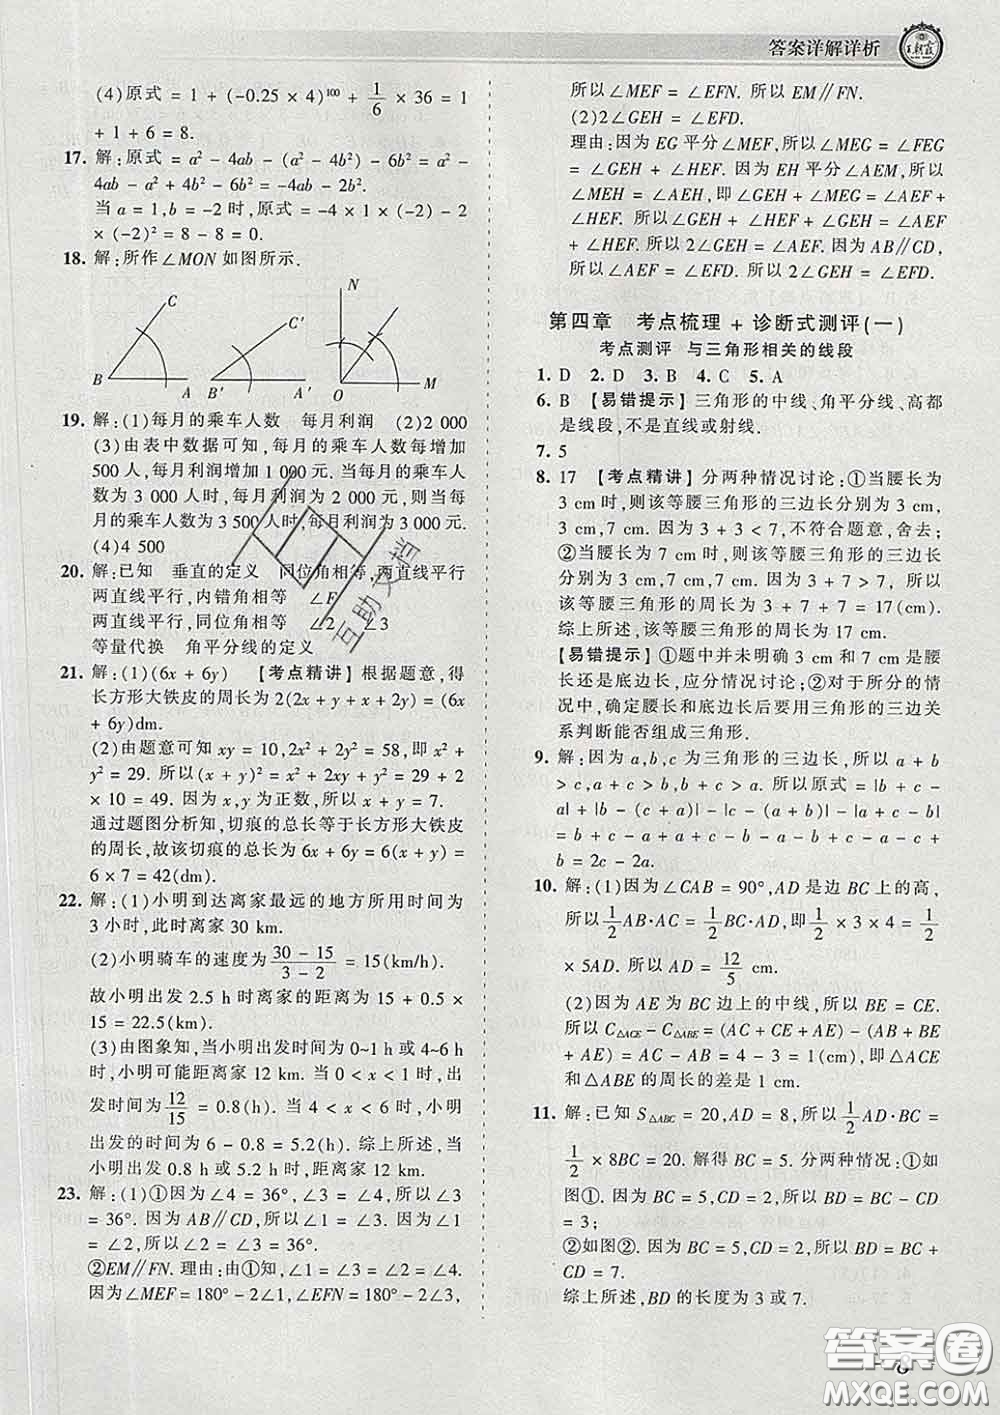 答案详解详析
王朝霞
(4)原式 = 1 + (-0.25 × 4)¹⁰⁰ + 1/6 × 36 = 1
+ 1 + 6 = 8.
17. 解:原式 = a² - 4ab - (a² - 4b²) - 6b² = a² -
4ab - a² + 4b² - 6b² = -4ab - 2b².
当 a = 1,b = -2 时,原式 = -4 × 1 × (-2) - 2
× (-2)² = 8 - 8 = 0.
18. 解:所作∠MON 如图所示.
C B A
C′ B′ A′
N O M
19. 解:(1)每月的乘车人数 每月利润 (2)2 000
(3)由表中数据可知,每月的乘车人数每增加
500 人,每月利润增加 1 000 元. 当每月的乘车人
数为 3 000 人时,每月利润为 2 000 元,则当每月
的乘车人数为 3 500 人时,每月利润为 3 000 元.
(4)4 500
20. 解:已知 垂直的定义 同位角相等,两直线平行
两直线平行,内错角相等 ∠E
两直线平行,同位角相等 ∠2 ∠3
等量代换 角平分线的定义
21. 解:(1)(6x + 6y) 【考点精讲】根据题意,得
长方形大铁皮的周长为 2(2x + y + x + 2y) = (6x
+ 6y)dm.
(2)由题意可知 xy = 10,2x² + 2y² = 58,即 x² +
y² = 29. 所以(x + y)² = x² + 2xy + y² = 29 + 2
× 10 = 49. 因为 x,y 为正数,所以 x + y = 7.
通过题图分析知,切痕的总长等于长方形大铁皮
的周长,故该切痕的总长为 6x + 6y = 6(x + y) =
6 × 7 = 42(dm).
22. 解:(1)小明到达离家最远的地方所用时间为
3 小时,此时离家 30 km.
(2)小明骑车的速度为 (30 - 15)/(3 - 2) = 15(km/h).
故小明出发 2.5 h 时离家的距离为 15 + 0.5 ×
15 = 22.5(km).
(3)由图象知,当小明出发时间为 0~1 h 或 4~6 h
时,小明可能距离家 12 km. 当 0 < x < 1 时,小明出
发时间为 12/15 = 0.8(h). 当 4 < x < 6 时,小明
出发的时间为 6 - 0.8 = 5.2(h). 综上所述,当
小明出发 0.8 h 或 5.2 h 时,距离家 12 km.
23. 解:(1)①因为∠4 = 36°,∠3 = ∠4,所以∠3
= 36°. 因为 AB∥CD,所以∠1 = ∠4. 因为∠1
= ∠2,所以∠2 = ∠3 = 36°.
②EM∥FN. 理由:由①知,∠1 = ∠2 = ∠3 = ∠4.
因为∠MEF = 180° - 2∠1,∠EFN = 180° - 2∠3,
所以∠MEF = ∠EFN. 所以 EM∥FN.
(2)2∠GEH = ∠EFD.
理由:因为 EG 平分∠MEF,所以∠MEG = ∠FEG
= ∠GEH + ∠HEF. 因为 EH 平分∠AEM,所以
∠MEH = ∠AEH,即∠GEH + ∠MEG = ∠AEF +
∠HEF. 所以∠GEH + ∠GEH + ∠HEF = ∠AEF
+ ∠HEF. 所以 2∠GEH = ∠AEF. 因为 AB∥CD,
所以∠AEF = ∠EFD. 所以 2∠GEH = ∠EFD.
第四章 考点梳理 + 诊断式测评(一)
考点测评 与三角形相关的线段
1. D 2. D 3. B 4. C 5. A
6. B 【易错提示】三角形的中线、角平分线、高都
是线段,不是直线或射线.
7. 5
8. 17 【考点精讲】分两种情况讨论:①当腰长为
3 cm 时,则该等腰三角形的三边长分别为 3 cm,
3 cm,7 cm. 因为 3 + 3 < 7,不符合题意,舍去;
②当腰长为 7 cm 时,则该等腰三角形的三边长
分别为 3 cm,7 cm,7 cm. 因为 3 + 7 > 7, 所以
该等腰三角形的周长为 3 + 7 + 7 = 17(cm).
综上所述,该等腰三角形的周长为 17 cm.
【易错提示】①题中并未明确 3 cm 和 7 cm 是腰
长还是底边长,应分情况讨论;②对于所分的情
况中,确定腰长和底边长后要用三角形的三边关
系判断能否组成三角形.
9. 解:因为 a,b,c 为三角形的三边长,所以 a + b
> c,a + c > b,b + c > a. 所以原式 = |b + c -
a| + |b - (c + a)| - |c - (a + b)| - |a + c - b|
= b + c - a + a + c - b - a - b + c - a - c +
b = 2c - 2a.
10. 解:(1)因为∠CAB = 90°,AD 是边 BC 上的高,
所以 1/2 AB·AC = 1/2 BC·AD,即 1/2 × 3 × 4 = 1/2
× 5AD. 所以 AD = 12/5 cm.
(2)因为 AE 为 BC 边上的中线,所以 BE = CE.
所以 C△ACE - C△ABE = (AC + CE + AE) - (AB + BE
+ AE) = AC - AB = 4 - 3 = 1(cm),即△ACE
和△ABE 的周长的差是 1 cm.
11. 解:已知 S△ABC = 20,AD = 8,所以 1/2 AD·BC =
1/2 × 8BC = 20. 解得 BC = 5. 分两种情况:①如
图①. 因为 BC = 5,CD = 2,所以 BD = BC - CD
= 3;
②如图②. 因为 BC = 5,CD = 2,所以 BD = BC
+ CD = 7.
综上所述,BD 的长度为 3 或 7.
互助文档
答案圈
MXQE.COM